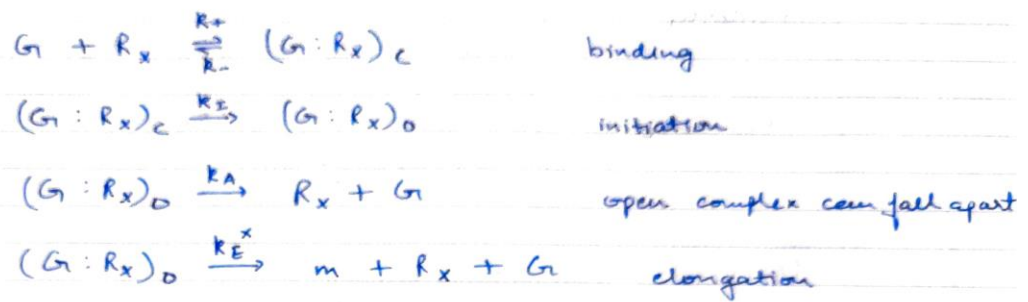 G + Rx ⇌ (G : Rx)c k+ k- binding
(G : Rx)c →kI (G : Rx)o initiation
(G : Rx)o →kA Rx + G open complex can fall apart
(G : Rx)o →kE^x m + Rx + G elongation